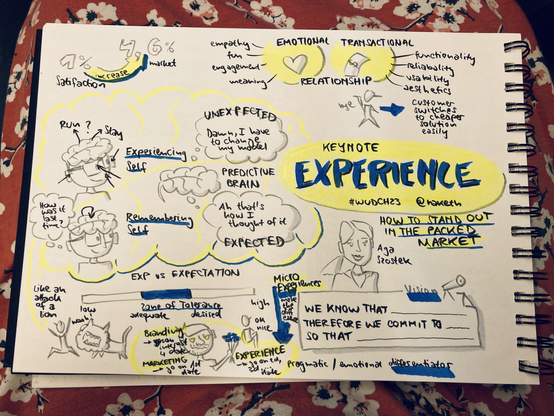 1%
4,6%
increase
market
Satisfaction
EMOTIONAL TRANSACTIONAL
RELATIONSHIP
empathy
fun
engagement
meaning
functionality
reliability
usability
aesthetics
bye
customer
switches
to cheaper
solution
easily
Run?
Stay
Experiencing
Self
UNEXPECTED
Damn, I have
to change
my model
PREDICTIVE
BRAIN
How was it
last
time?
Remembering
Self
Ah that's
how I
thought of it
EXPECTED
KEYNOTE
EXPERIENCE
#WUDCH23
HOW TO STAND OUT
IN THE PACKED
MARKET
Aga
Szostek
EXP vs EXPECTATION
Zone of Tolerance
adequate desired
low
high
Like an
attack
of a
lion
oh nice
MICRO
Experiences
make
the
difference
Branding!
MARKETING
go on 1st
date
EXPERIENCE
go on 1st
date
Vision
WE KNOW THAT
THEREFORE WE COMMIT TO
SO THAT
pragmatic / emotional differentiator